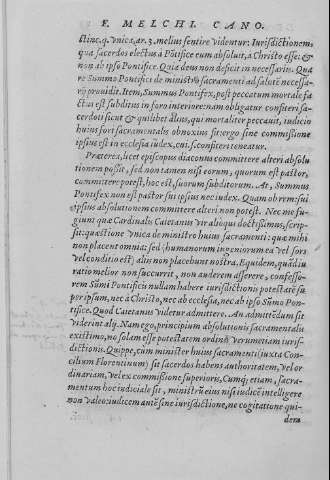 F. MELCHI. CANO.
stinc. q. vnica, ar. 3. melius sentire videntur: Iurisdictionem,
qua sacerdos electus à Põtifice eum absoluit, à Christo esse: &
non ab ipso Pontifice. Quia deus non deficit in necessariis. Qua
re Summo Pontifici de ministro sacramenti ad salutẽ necessa-
rij prouidit. Item, Summus Pontifex, post peccatum mortale fa
ctus est subditus in foro interiore: nam obligatur confiteri sa-
cerdoti sicut & quilibet alius, qui mortaliter peccauit, iudicio
huius fori sacramentalis obnoxius sit: ergo sine commissiõne
ipsius est in ecclesia iudex, cui, s. confiteri teneatur.
Præterea, licet episcopus diaconus committere alteri absolu
tionem possit, sed non tamen nisi eorum, quorum est pastor,
committere potest, hoc est, suorum subditorum. At, Summus
Pontifex non est pastor sui ipsius nec iudex. Quam ob rem sui
ipsius absolutionem committere alteri non potest. Nec me fu-
giunt quæ Cardinalis Caietanus vir alioqui doctissimus, scrip-
sit: quæstione vnica de ministro huius sacramenti: quæ mihi
non placent omnia: sed (humanorum ingeniorum ea vel sors
vel conditio est) aliis non placebunt nostra. Equidem, quãdiu
ratio melior non succurrit, non auderem asserere, confesso-
rem Sũmi Pontificis nullam habere iurisdictionis potestatẽ su
per ipsum, nec à Christo, nec ab ecclesia, nec ab ipso Sũmo Pon-
tifice. Quod Caietanus videtur admittere. An admittẽdum sit
viderint alij. Nam ego, principium absolutionis sacramentalis
existimo, no solam esse potestatem ordinis verumetiam iuris-
dictionis. Quippe, cum minister huius sacramenti (iuxta Con-
cilium Florentinum) sit sacerdos habens authoritatem, vel or
dinariam, vel ex commissiõne superioris. Cumq; etiam, sacra-
mentum hoc iudiciale sit, ministrũ eius nisi iudicẽ intelligere
non valeo: iudicem autẽ sine iurisdictione, ne cogitatione qui-
dem